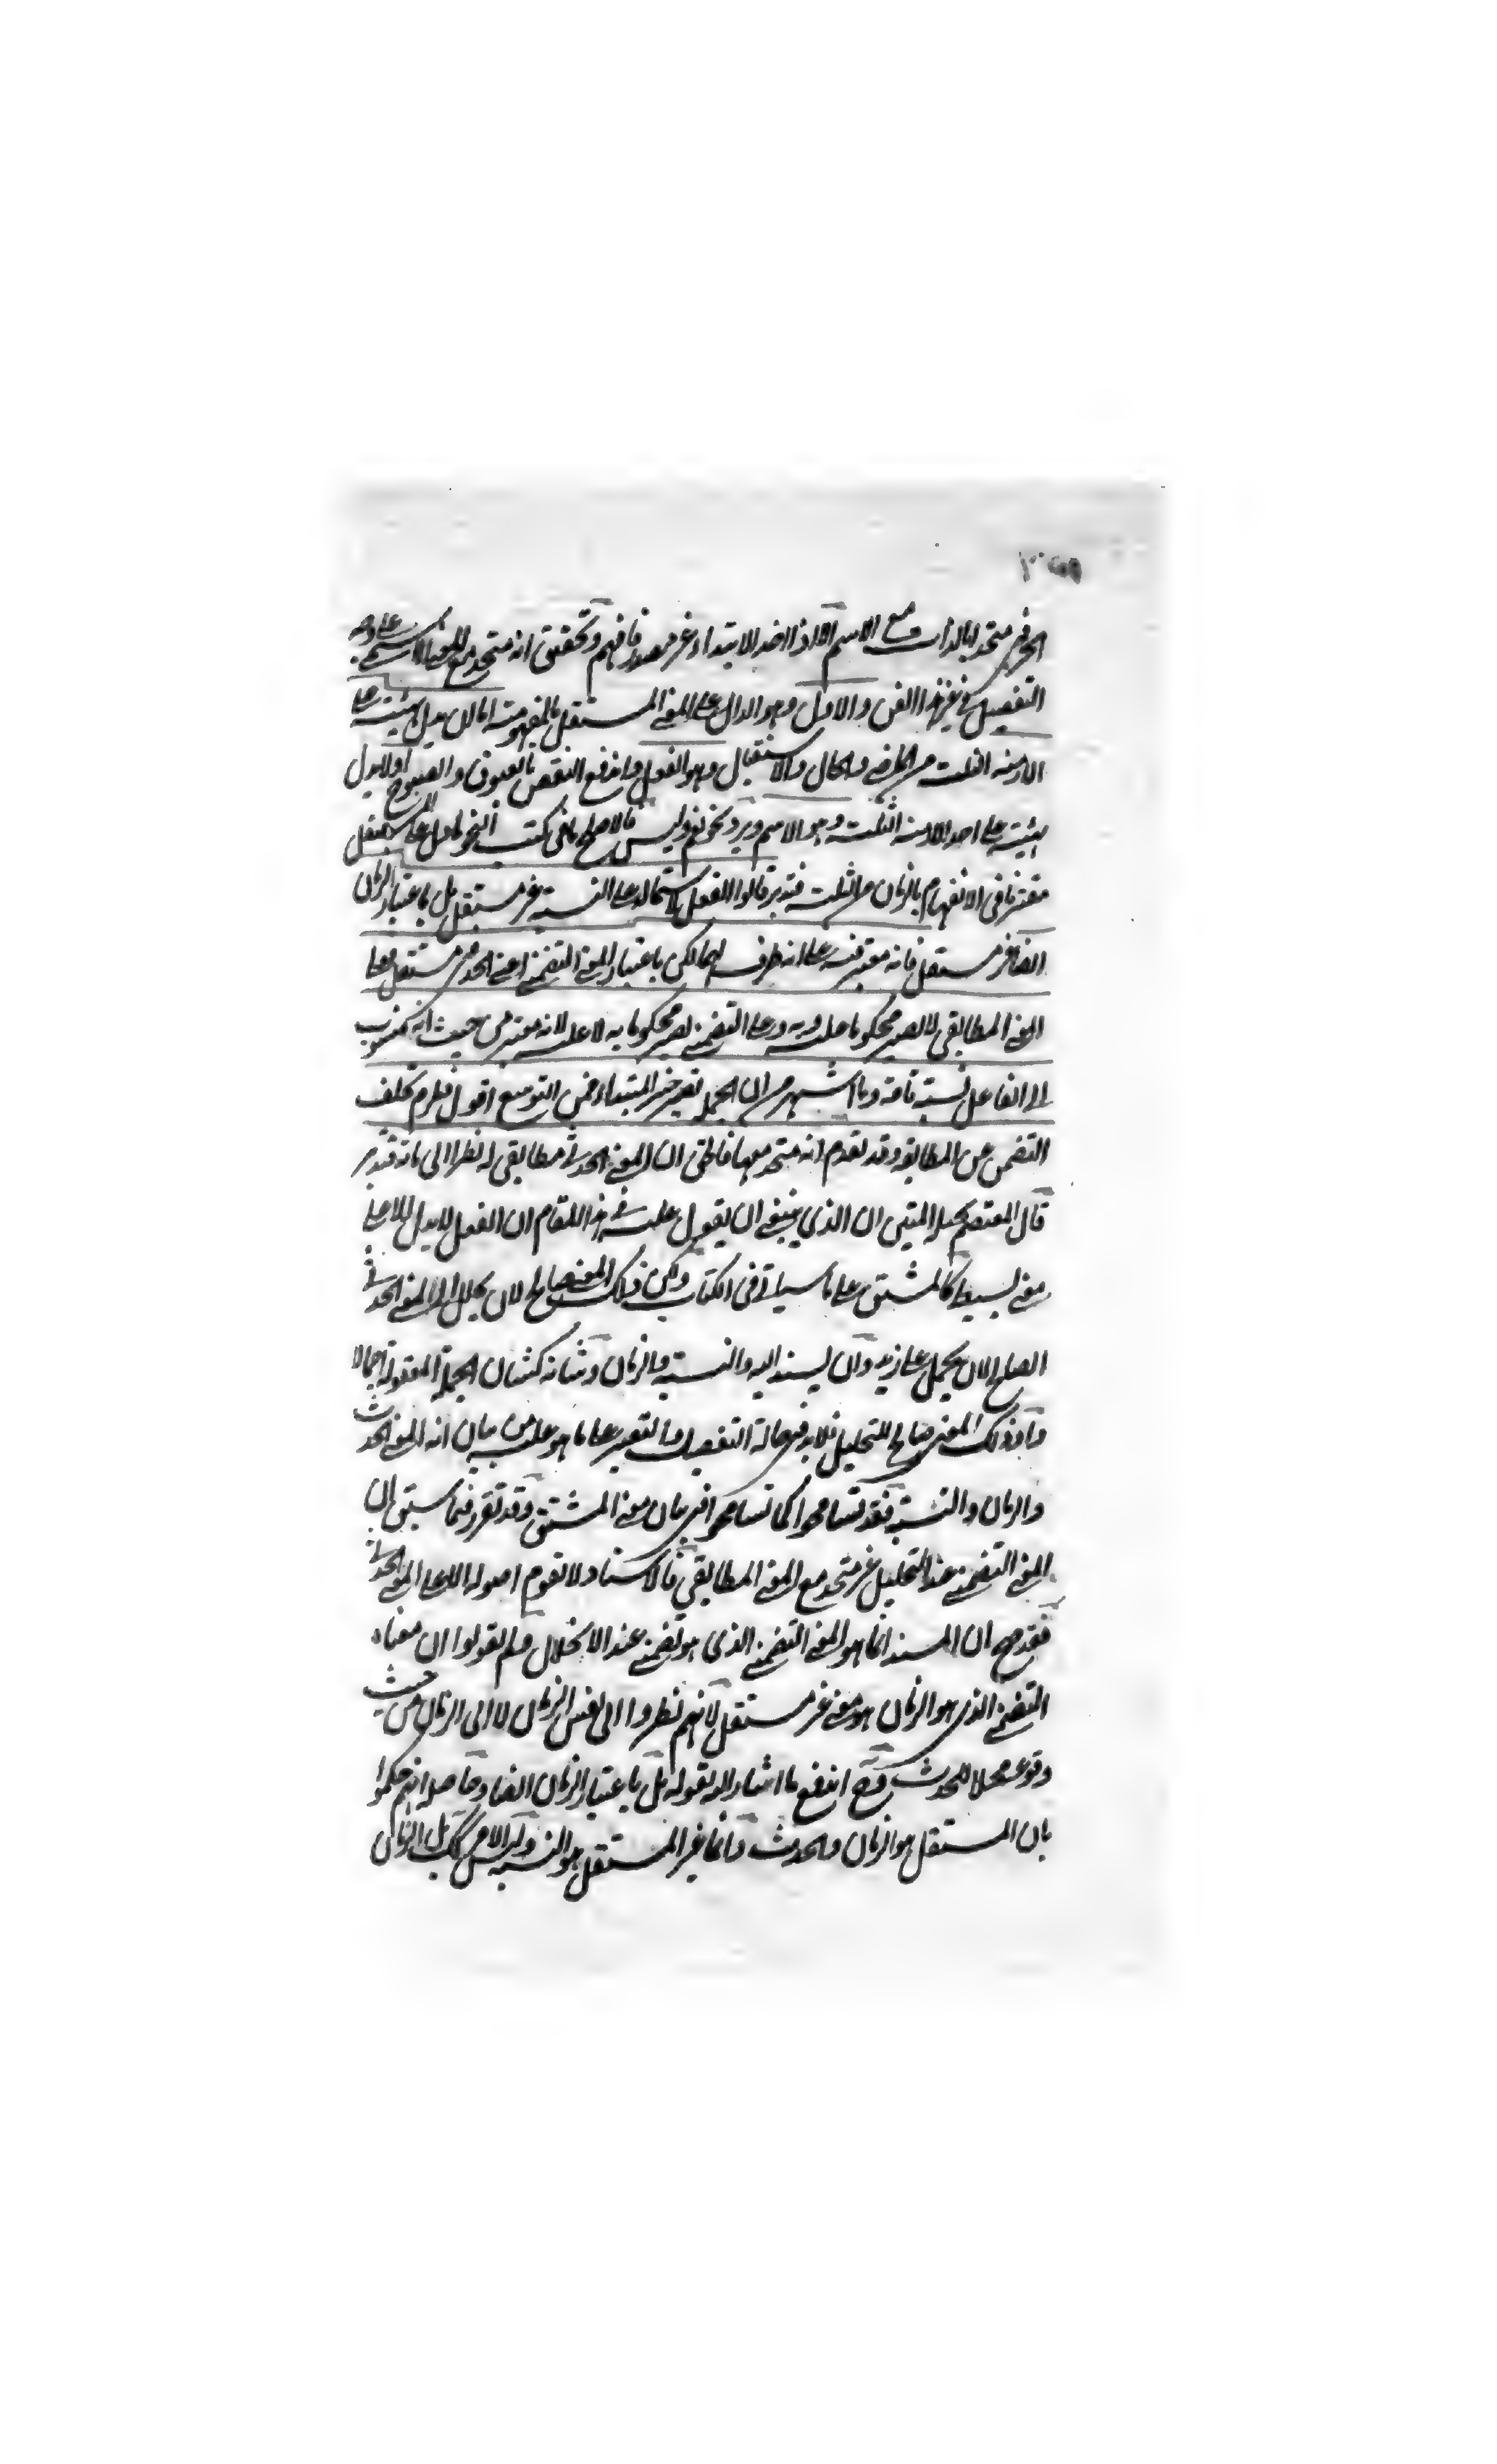 الحرفي متحد بالذات مع الاسم الا اذا اخذ الابتداء غير مصدر فافهم وتحقيق انه متحد مع المعنى الاسمي على وجه
التفصيل في غير هذا الفن والاول وهو الدال على المعنى المستقل بالمفهومية اما ان يدل بهيئته على
الازمنة الثلث من الماضي والحال والاستقبال وهو الفعل واندفع النقض بالغبوق والصبوح او لا يدل
بهيئته على احد الازمنة الثلث وهو الاسم ويرد نحو نعم وليس فالاصلح ما في كتب النحو ما دل على المستقل
مقترنا في الانفهام بالزمان من الثلث فتدبر قالوا الفعل لاشتماله على النسبة غير مستقل بل باعتبار الزمان
ايضا غير مستقل فانه معتبر فيه على انه ظرف لها لكن باعتبار المعنى التضمني اعني الحدث مستقل فعلى
المعنى المطابقي لا يصير محكوما عليه وبه وعلى التضمني يصير محكوما به لا عليه لانه معتبر من حيث انه منسوب
الى الفاعل نسبة تامة وما اشتهر من ان الجملة تصير خبر المبتداء فمن التوسع اقول فيلزم تخلف
التضمن عن المطابقة وقد تقدم انه متحد معها فالحق ان المعنى الحدثي مطابقي له نظرا الى مادته فتدبر
قال المعتصم بحبله المتين ان الذي ينبغي ان يعول عليه في هذا المقام ان الفعل لا يدل الا على
معنى بسيط كالمشتق على ما سيأتي في الكتاب ولكن ذلك المعنى صالح لان يحلل الى المعنى الحدثي
الصالح لان يحمل على زيد وان يسند اليه والنسبة والزمان وشانه كشان الجملة المعقولة اجمالا
واذ ذلك المعنى صالح للتحليل فلا بد في حالة التفصيل والتعبير على ما هو عليه من بيان انه المعنى الحدث
والزمان والنسبة فقد تسامحوا كما تسامحوا في بيان معنى المشتق وقد تقرر فيما سبق ان
المعنى التضمني عند التحليل غير متحد مع المعنى المطابقي فالاسناد لا تقوم اصوله الا على المعنى الحدثي
فقد صح ان المسند انما هو المعنى التضمني الذي هو تضمني عند الانحلال ولم يقولوا ان معناه
التضمني الذي هو الزمان هو معنى غير مستقل لانهم نظروا الى نفس الزمان لا الى الزمان من حيث
وقوعه محلا للحدث وح اندفع ما اشار اليه بقوله بل باعتبار الزمان ايضا وحاصله انهم حكموا
بان المستقل هو الزمان والحدث وانما غير المستقل هو النسبة وليس الامر كك بل الزمان